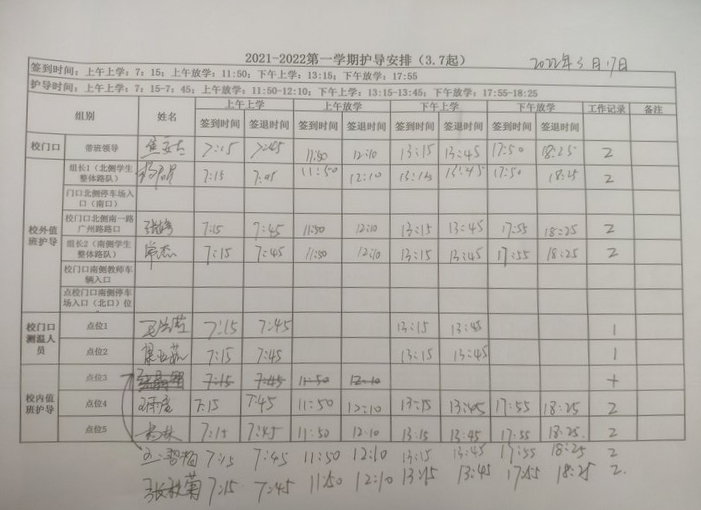 2021-2022第一学期护导安排（3.7起） 2022年3月17日
签到时间：上午上学：7：15；上午放学：11:50；下午上学：13:15；下午放学：17:55
护导时间：上午上学：7：15-7：45；上午放学：11:50-12:10；下午上学：13:15-13:45；下午放学：17:55-18:25
组别 姓名 上午上学 上午放学 下午上学 下午放学 工作记录 备注
签到时间 签退时间 签到时间 签退时间 签到时间 签退时间 签到时间 签退时间
校门口 带班领导 7:15 7:45 11:50 12:10 13:15 13:45 17:50 18:25 2
校外值班护导
组长1（北侧学生整体路队） 7:15 11:50 12:10 13:45 17:50 18:25 2
门口北侧停车场入口（南口）
校门口北侧南一路广州路路口 7:15 7:45 11:50 12:10 13:15 13:45 17:55 18:25 2
组长2（南侧学生整体路队） 7:15 7:45 11:50 12:10 13:15 13:45 17:55 18:25 2
校门口南侧教师车辆入口
点校门口南侧停车场入口（北口）位
校门口测温人员
点位1 7:15 7:45 13:15 13:45 1
点位2 7:15 7:45 13:15 13:45 1
校内值班护导
点位3 7:15 7:45 11:50 12:10
点位4 7:15 7:45 11:50 12:10 13:15 13:45 17:55 18:25 2
点位5 7:15 7:45 11:50 12:10 13:15 13:45 17:55 18:25 2
7:15 7:45 11:50 12:10 13:15 13:45 17:55 18:25 2
张秋菊 7:15 7:45 11:50 12:10 13:15 13:45 17:55 18:25 2